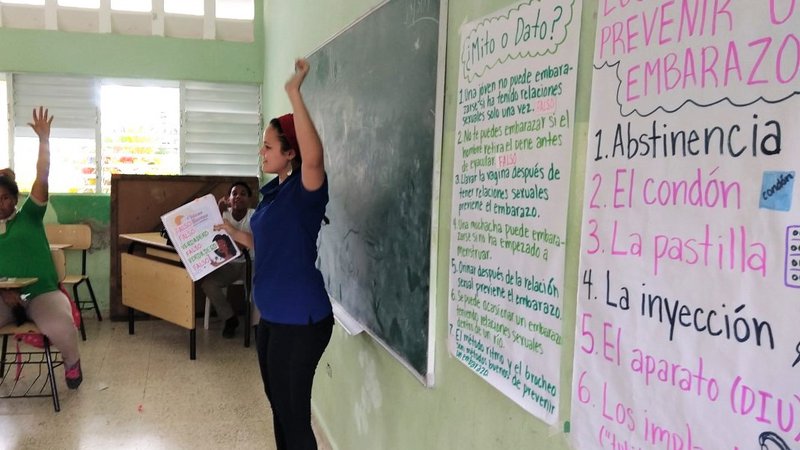 ¿Mito o Dato?
1. Una joven no puede embara-
zarse si ha tenido relaciones
sexuales solo una vez. FALSO
2. No te puedes embarazar si el
hombre retira el pene antes
de eyacular. FALSO
3. Lavar la vagina después de
tener relaciones sexuales
previene el embarazo.
4. Una muchacha puede embara-
zarse si no ha empezado a
menstruar.
5. Orinar después de la relación
sexual previene el embarazo.
6. Se puede ocasionar un embarazo
teniendo relaciones sexuales
dentro de un río.
7. El método ritmo y el brocheo
son métodos buenos de prevenir
un embarazo.
PREVENIR U
EMBARAZO
1. Abstinencia
2. El condón
condón
3. La pastilla
4. La inyección
5. El aparato (DIU)
6. Los impla
FALSO
FALSO
VERDADERO
FALSO